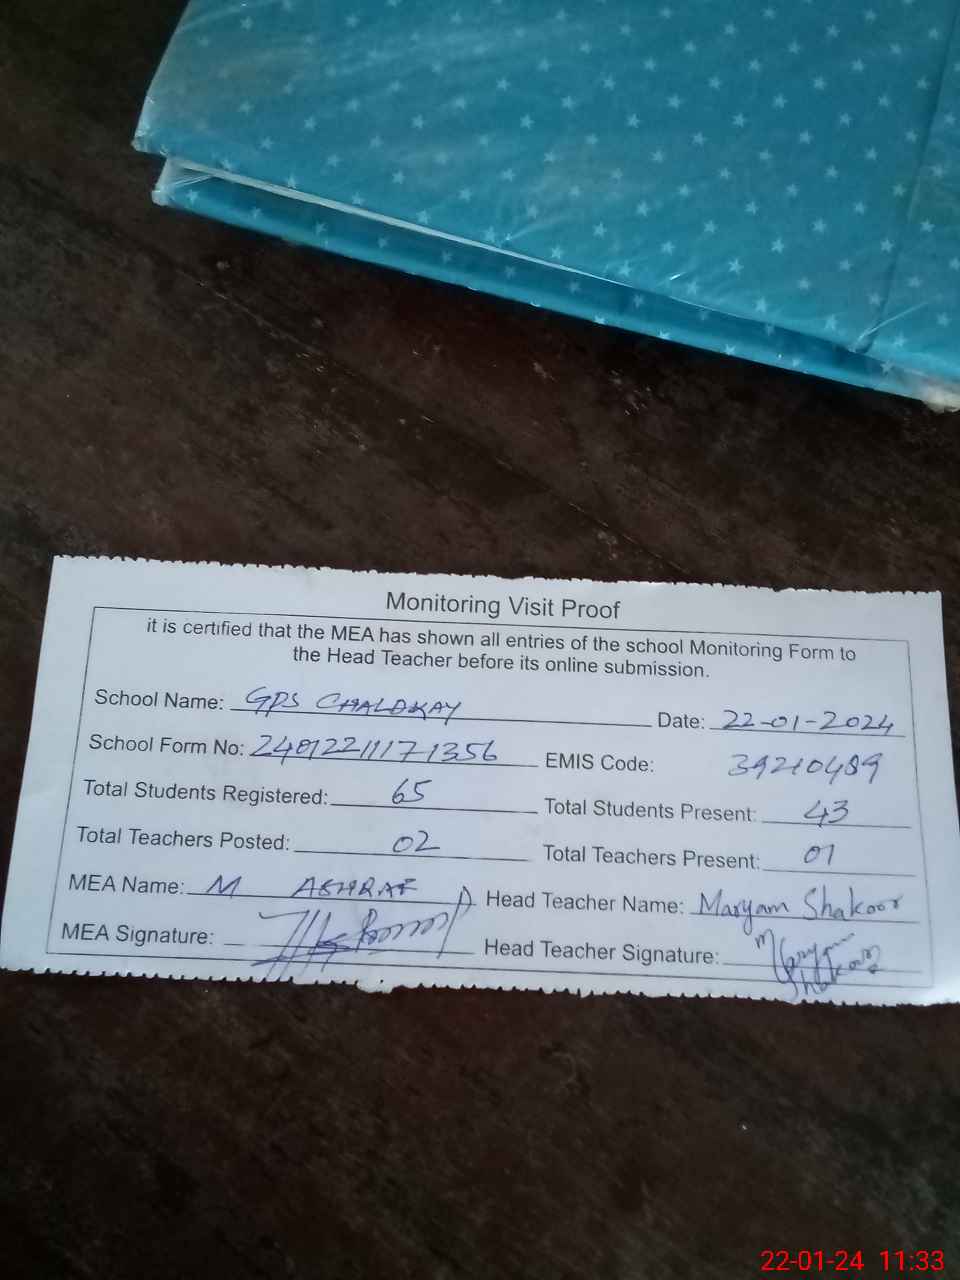 Monitoring Visit Proof
it is certified that the MEA has shown all entries of the school Monitoring Form to
the Head Teacher before its online submission.
School Name: GPS CHALOKAY Date: 22-01-2024
School Form No: 24012211171356 EMIS Code: 39210489
Total Students Registered: 65 Total Students Present: 43
Total Teachers Posted: 02 Total Teachers Present: 01
MEA Name: M ASHRAF Head Teacher Name: Maryam Shakoor
MEA Signature: Head Teacher Signature: Maryam
Shakoor
22-01-24 11:33